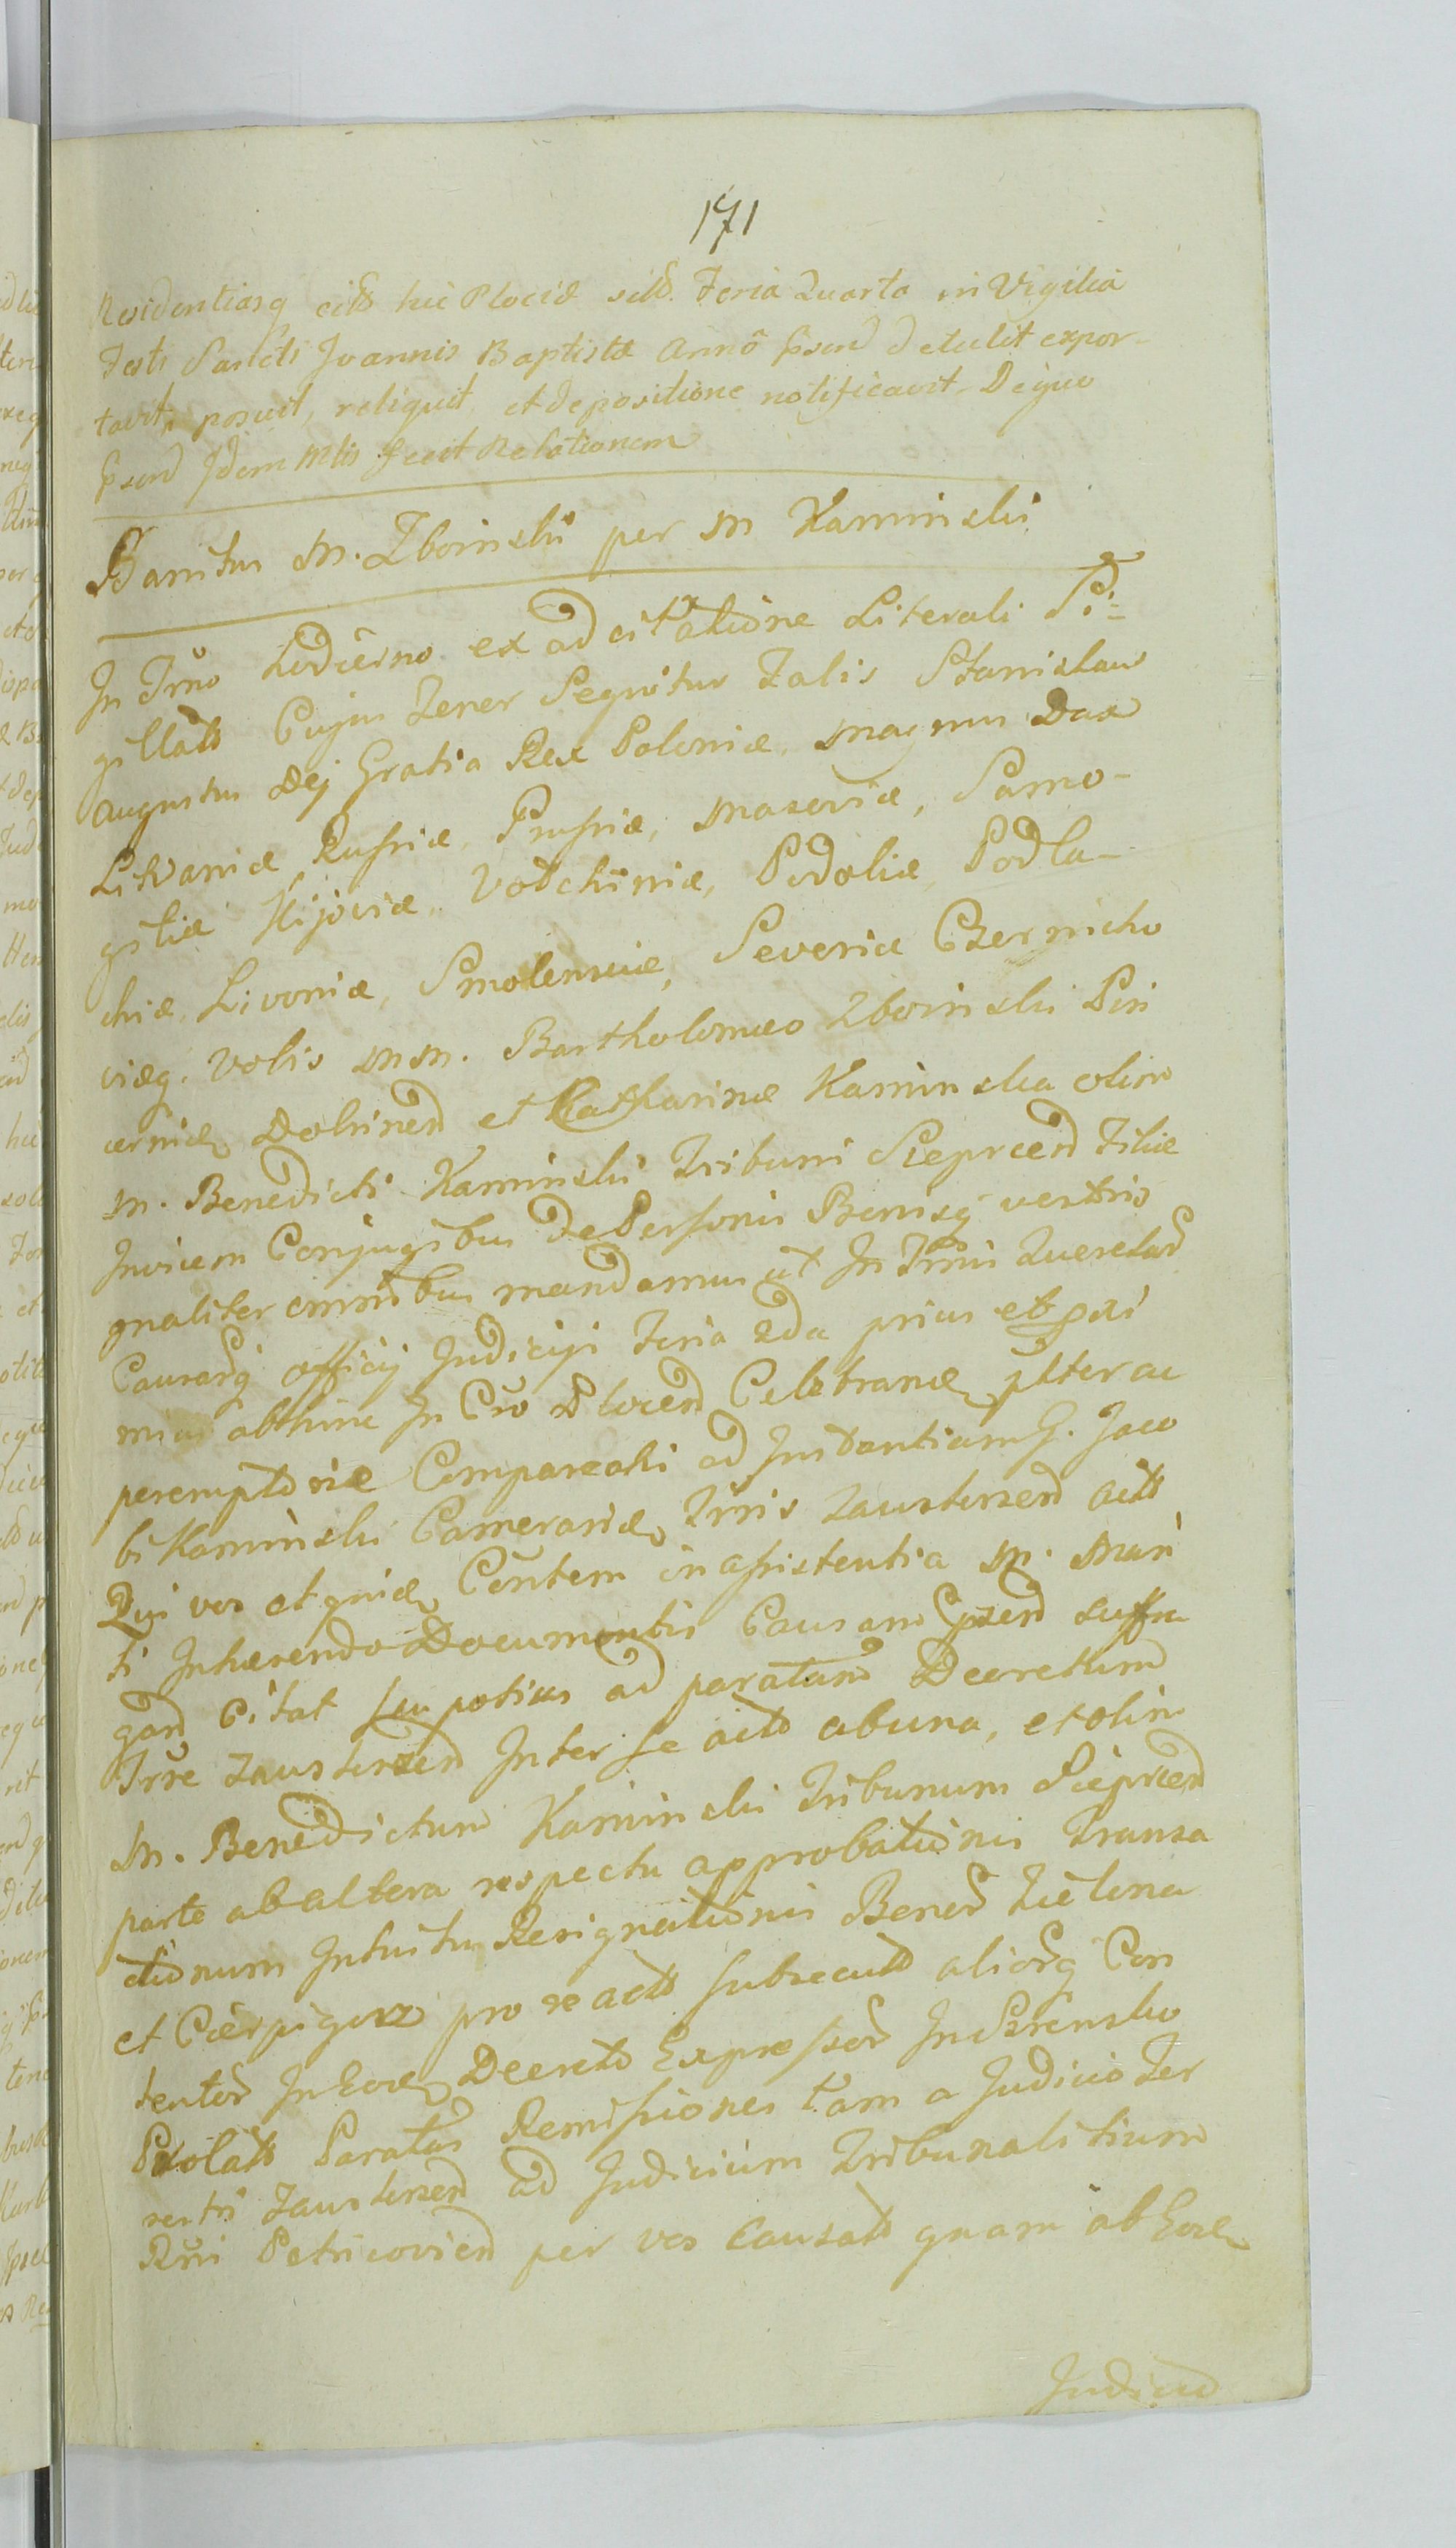 171
Residentiasq eitð hic Plociæ scilð. Feria Quarta in Vigilia
Festi Sancti Joannis Baptistæ Anno detulit expor-
tavit, posuit, reliquit, et de positione notificavit. De quo
Idem Mtlis fecit Relationem
Banitus M. Zboinski per M Kaminski
In Trno hodierno ex ad citatione Literali Si-
gillata Cujus Tener Sequitur Talis Stanislaus
Augustus Dej Gratia Rex Poloniæ, Magnus Dux
Litvaniæ, Russiæ, Prussiæ, Masoviæ, Samo-
gitiæ Kijoviæ, Volchiniæ, Podoliæ, Podla-
chiæ, Livoniæ, Smolensciæ, Severiæ Czernicho
viæq. Vobis MM. Bartholomæo Zboinski Pin
cernæ Dobrinen et Catharinæ Kaminska olim
M. Benedicti Kaminski Tribuni Sieprcen Filiæ
Invicem Conjugibus de Personis Bonisq vestris
gnaliter omnibus mandamus ut In Trnis Querelar
Causarq officij Judicijs Feria 2da prius et proxi
mius abhinc In Cro Plocen Celebran plter ac
peremptorie Compareatis ad Instantiam G. Jaco
bi Kaminski Camerariæ Trris Zauskrzen actð
Qui vos et Centem in assistentia M. Mari
ti Inhærendo Documentis Causam suffra
gan Citat seu potius ad paratam Decretum
Trre Zauskrzen Inter se actð ab una, et olim
M. Benedictum Kaminski Tribunum Sieprcen
parte ab altera respectu approbationis Transa
ctionum Intuitu Resignationis Bonor Zielona
et Cierpigorz pro re actð subsecutð aliorq Con
tentor In Eoðem Decretð Expressor In Szrensko
Prolatð Paratas Remissiones tam a Judicio Ter
restri Zauskrzen ad Judicium Tribunalitium
Rni Petricovien per vos Causatð quam ab Eoðem
Judicio